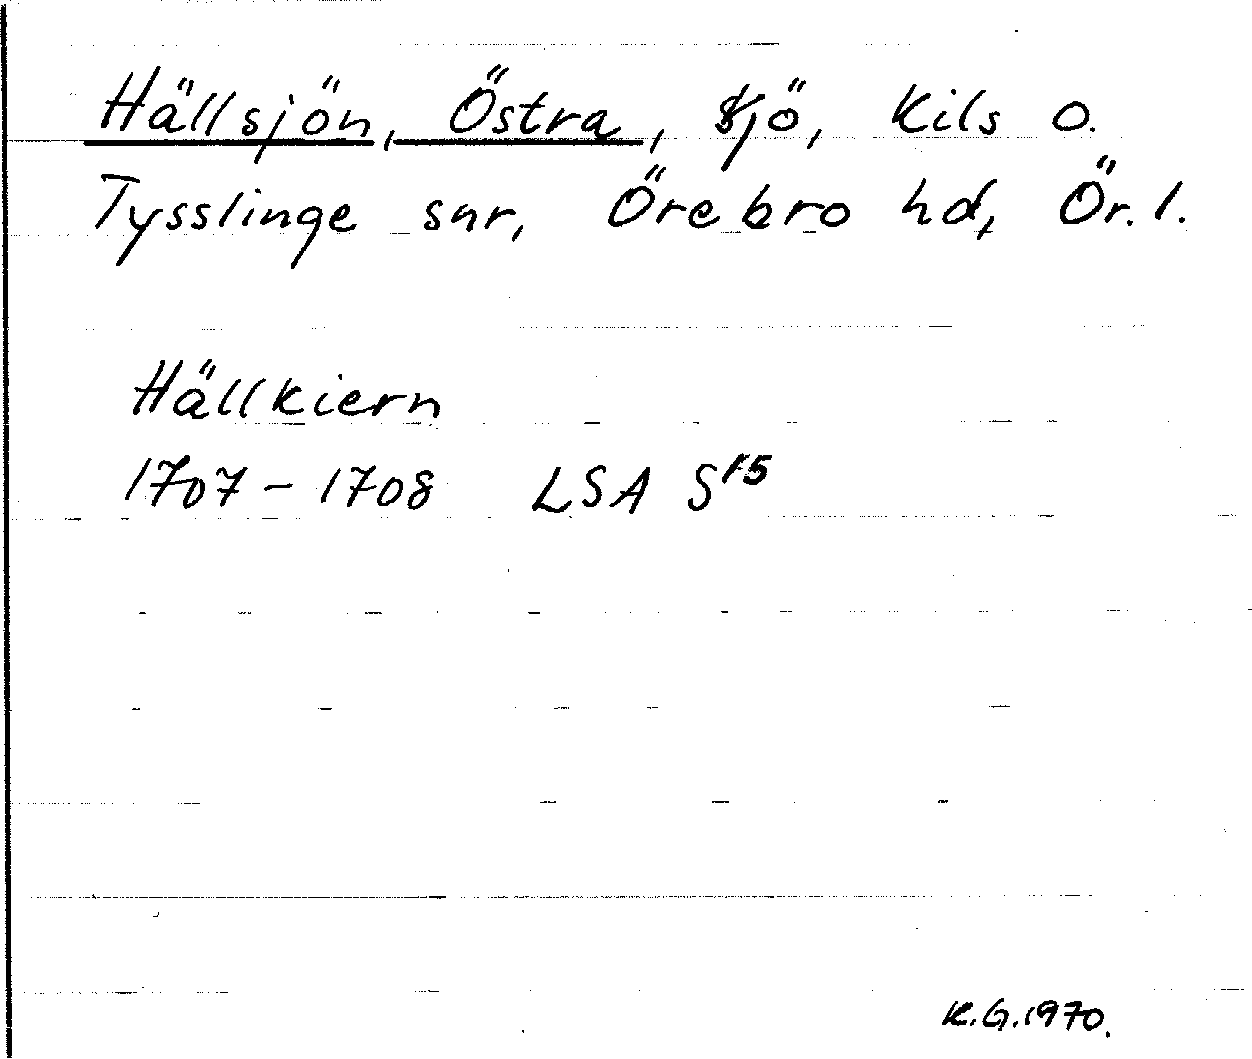 Hällsjön, Östra, sjö, Kils o.
Tysslinge snr, Örebro hd, Ör. l.
Hällkiern
1707-1708 LSA S15
K.G.1970.